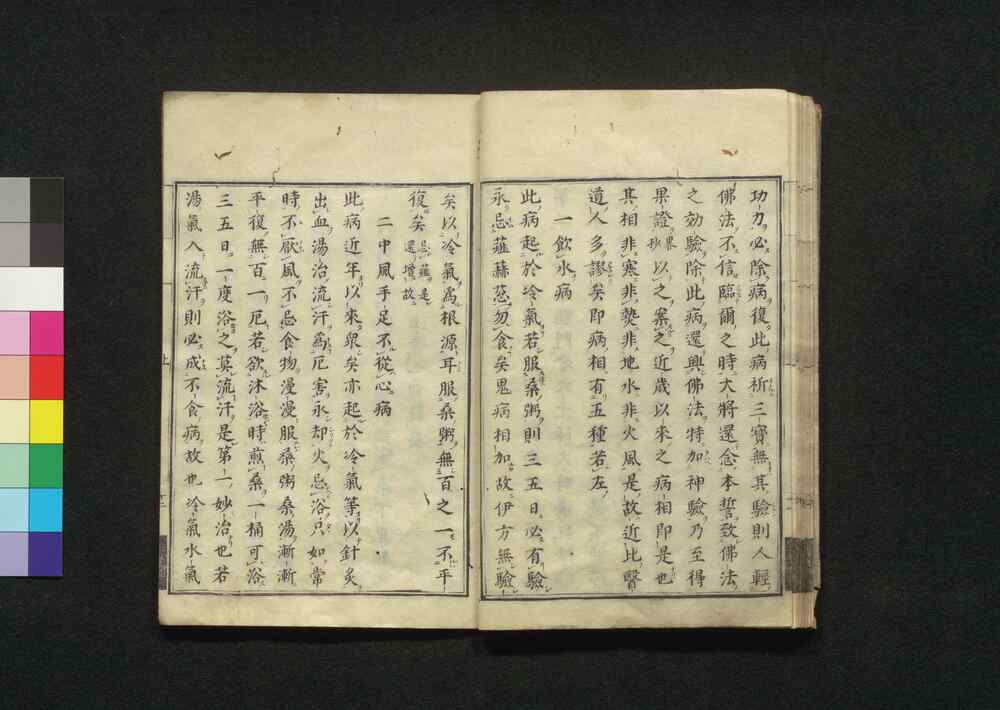 功力必除病復此病祈三寶無其驗則人輕
佛法不信臨爾之時大將還念本誓致佛法
之効驗除此病還興佛法特加神驗乃至得
果證果抄以之案之近歲以來之病相即是也
其相非寒非熱非地水非火風是故近比醫
道人多謬矣即病相有五種若左
一飲水病
此病起於冷氣若服桑粥則三五日必有驗
永忌薤蒜葱勿食矣鬼病相加故他方無驗
矣以冷氣為根源耳服桑粥無百之一不平
復矣忌薤是還増故
二中風手足不從心病
此病近年以來衆矣亦起於冷氣等以針灸
出血湯治流汗為厄害永却火忌浴只如常
時不厭風不忌食物漫漫服桑粥桑湯漸漸
平復無百一厄若欲沐浴時煎桑一桶可浴
三五日一度浴之莫流汗是第一妙治也若
湯氣入流汗則必成不食病故也冷氣水氣
上